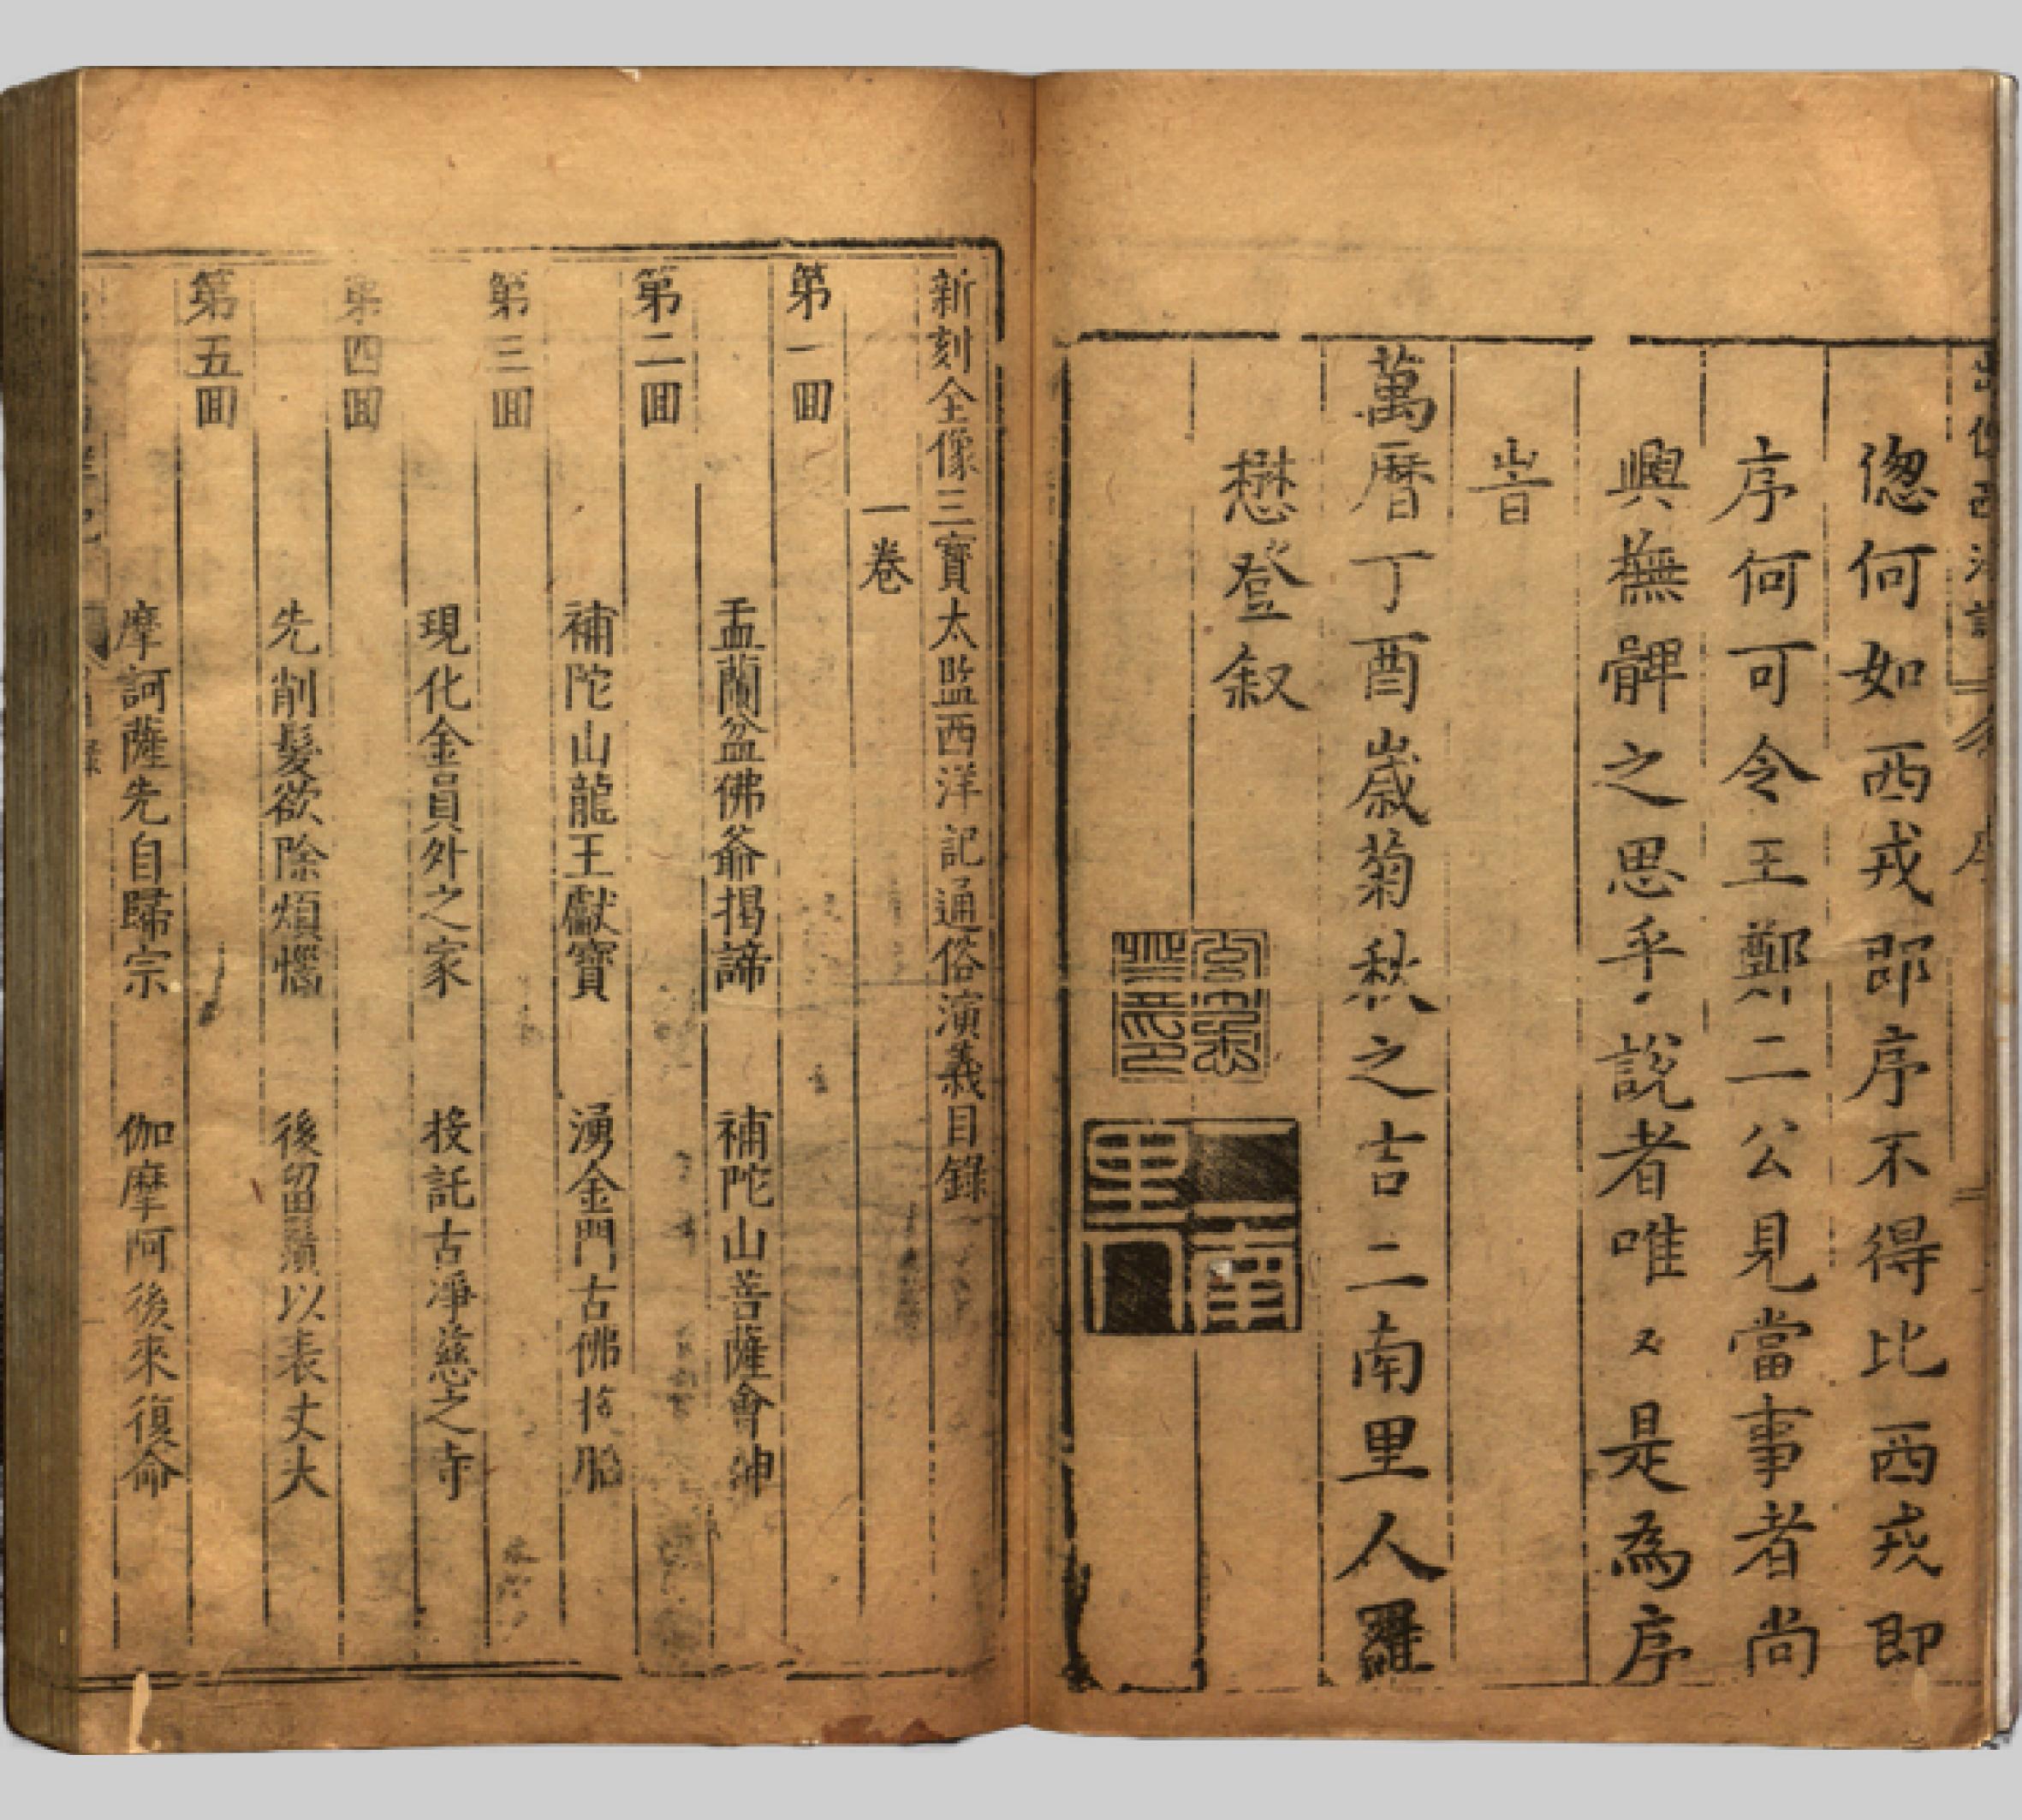 偬何如西戎即序不得比西戎即
序何可令王鄭二公見當事者尚
興撫髀之思乎說者唯〻是為序
旹
萬曆丁酉歲菊秋之吉二南里人羅
懋登叙
二南里人
新刻全像三寶太監西洋記通俗演義目錄
一卷
第一回
盂蘭盆佛爺揭諦 補陀山菩薩會神
第二回
補陀山龍王獻寶 湧金門古佛投胎
第三回
現化金員外之家 投託古凈慈之寺
第四回
先削髮欲除煩惱 後留鬚以表丈夫
第五回
摩訶薩先自歸宗 伽摩阿後來復命